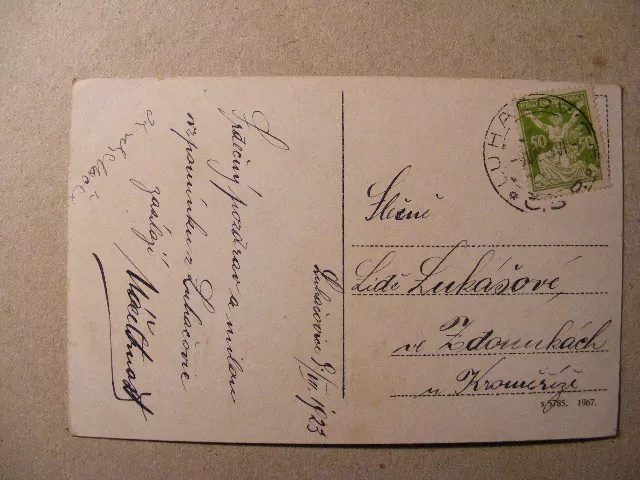 Srdečný pozdrav a milou
vzpomínku z Luhačovic
zasílají
Luhačovice 8/VII 1923
50
50
LUHAČ
Slečně
Lidě Lukášové,
ve Zdounkách
u Kroměříže
s 5785. 1967.